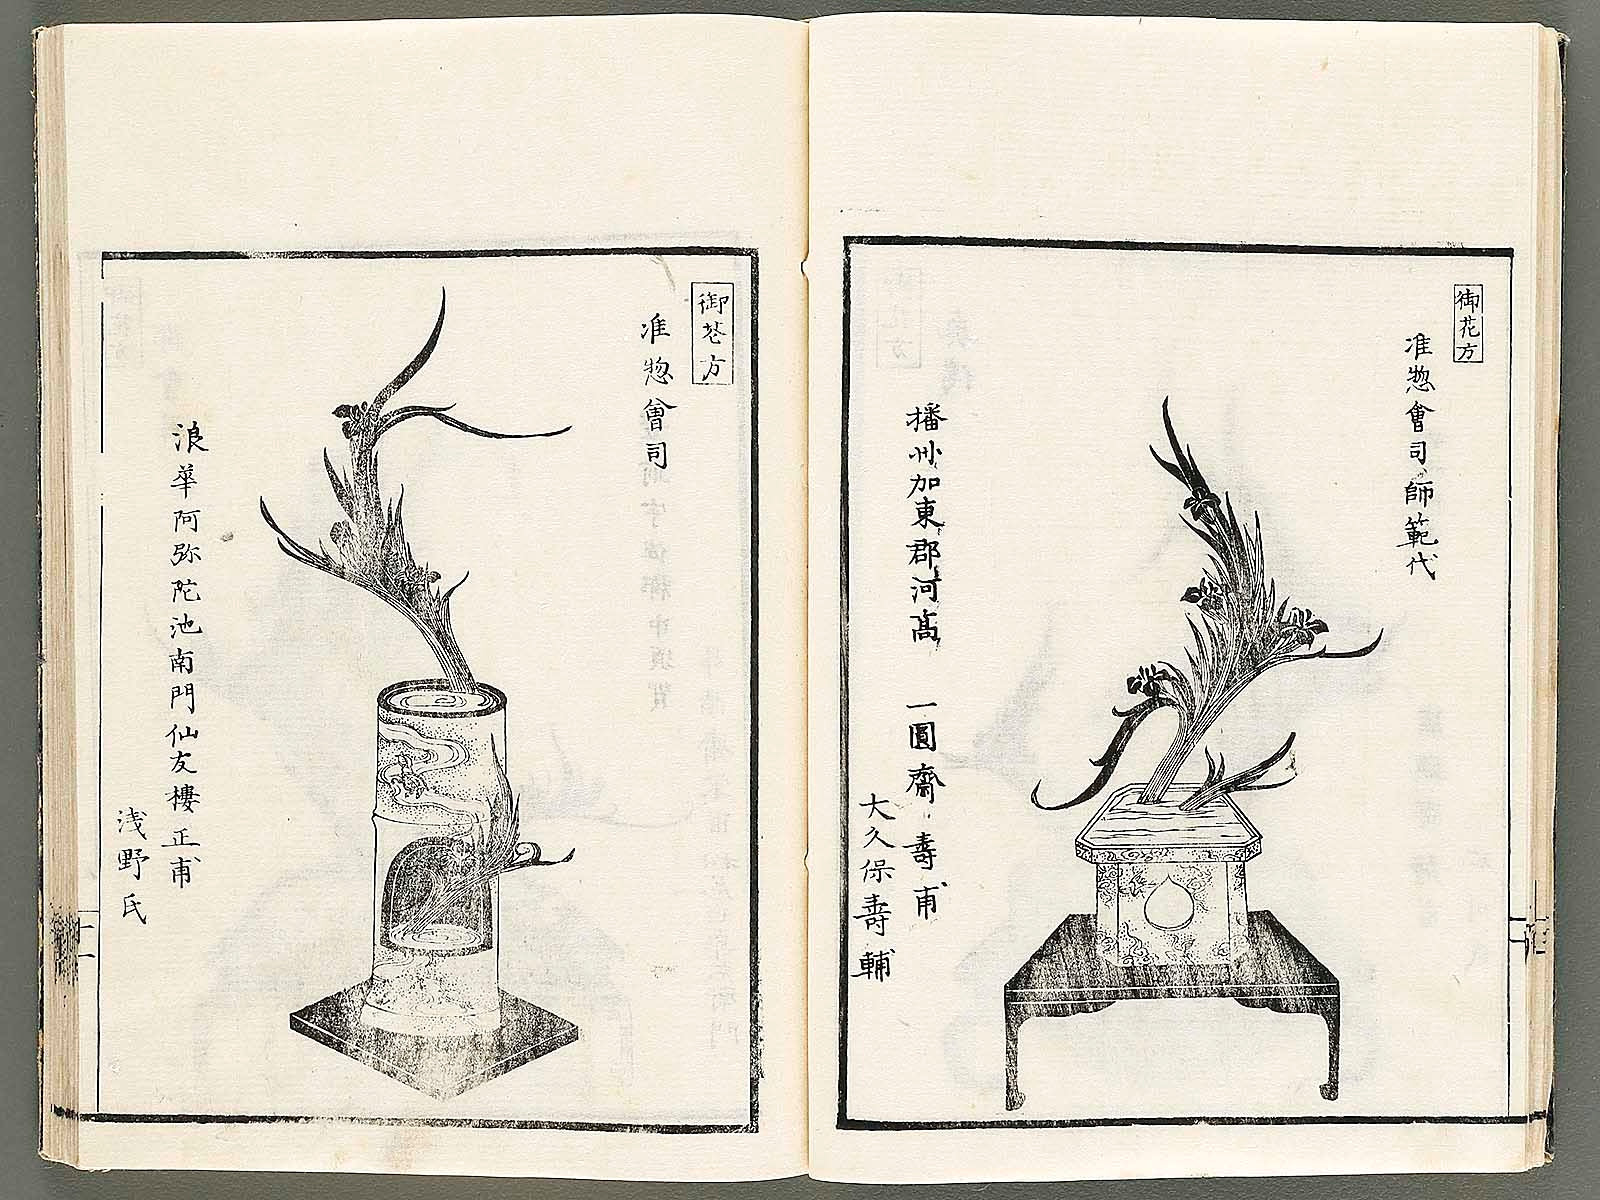 御花方
准惣會司師範代
播州加東郡河髙
一圓齋壽甫
大久保壽輔
御花方
准惣會司
浪華阿弥陀池南門仙友樓正甫
浅野氏
十二